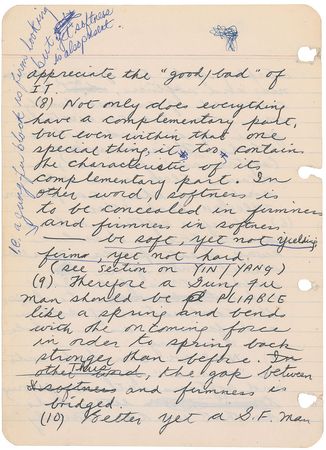 appreciate the "good/bad" of
IT.
(8) Not only does everything
have a complementary part,
but even within that one
special thing, it too, contains
the characteristic of its
complementary part. In
other word, softness is
to be concealed in firmness
and firmness in softness
— be soft, yet not yielding,
firm, yet not hard.
(see section on YIN/YANG)
(9) Therefore a Gung Fu
man should be PLIABLE
like a spring and bends
with the oncoming force
in order to spring back
stronger than before. In
other word, Thus the gap between
softness and firmness is
bridged.
(10) Better yet a G.F. man
i.e. a gung fu block is firm looking
but yet softness
is also present.